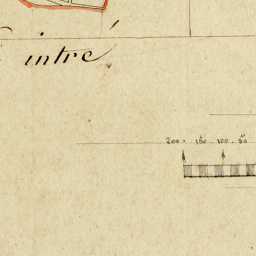 intré
200 150 100 50